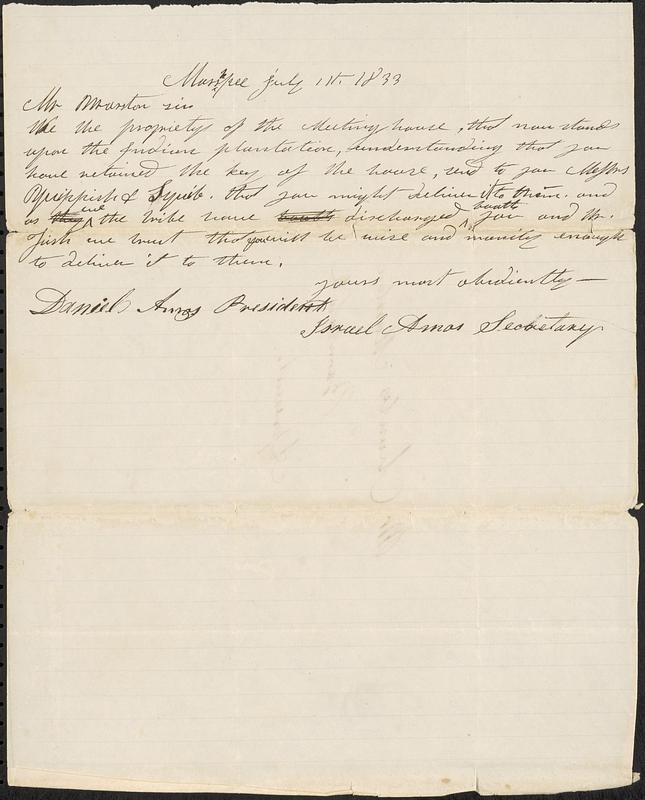 Marspee July 1st. 1833
Mr Marston sir
We the propriety of the Meeting house, that now stands
upon the Indian plantation, understanding that you
have retained the key of the house, send to you Messrs
Quippish & Squib. that you might deliver it to them. and
as we the tribe have discharged boath you and Mr.
Fish we trust that you will be wise and manily enough
to deliver it to them.
yours most obediently —
Daniel Amos President
Israel Amos Secretary